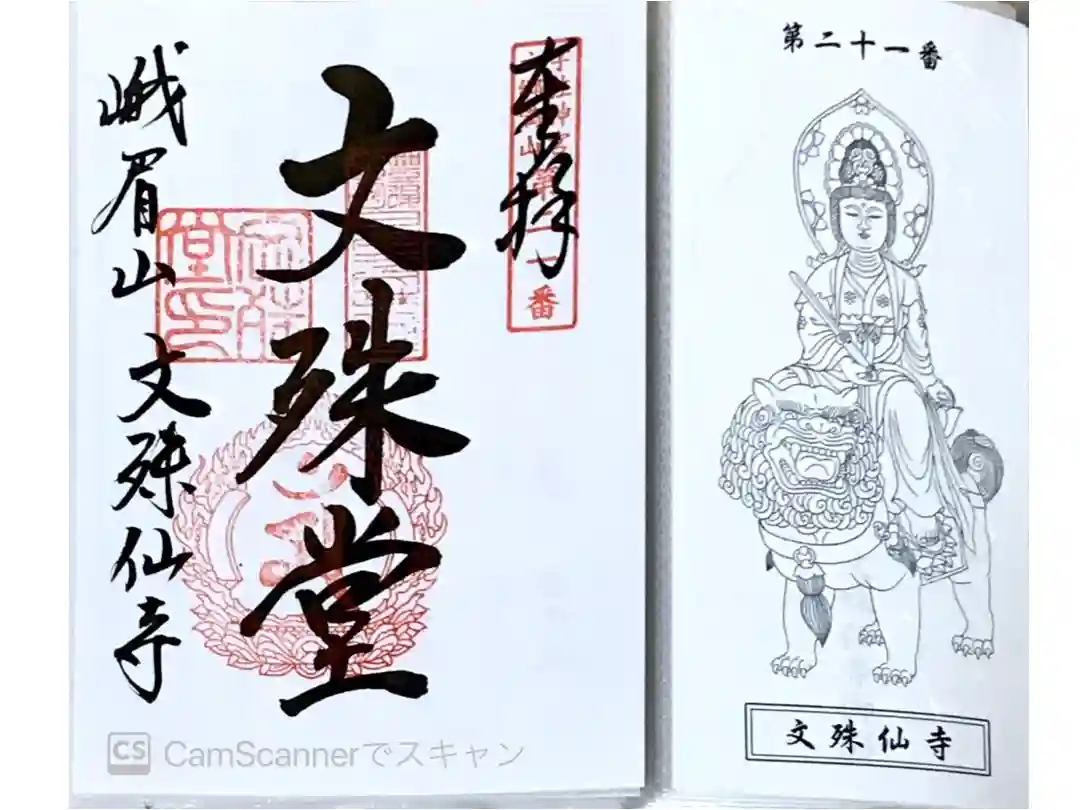 第二十一番
文殊仙寺
奉拝
番
文殊堂
峨眉山 文殊仙寺
CS CamScannerでスキャン